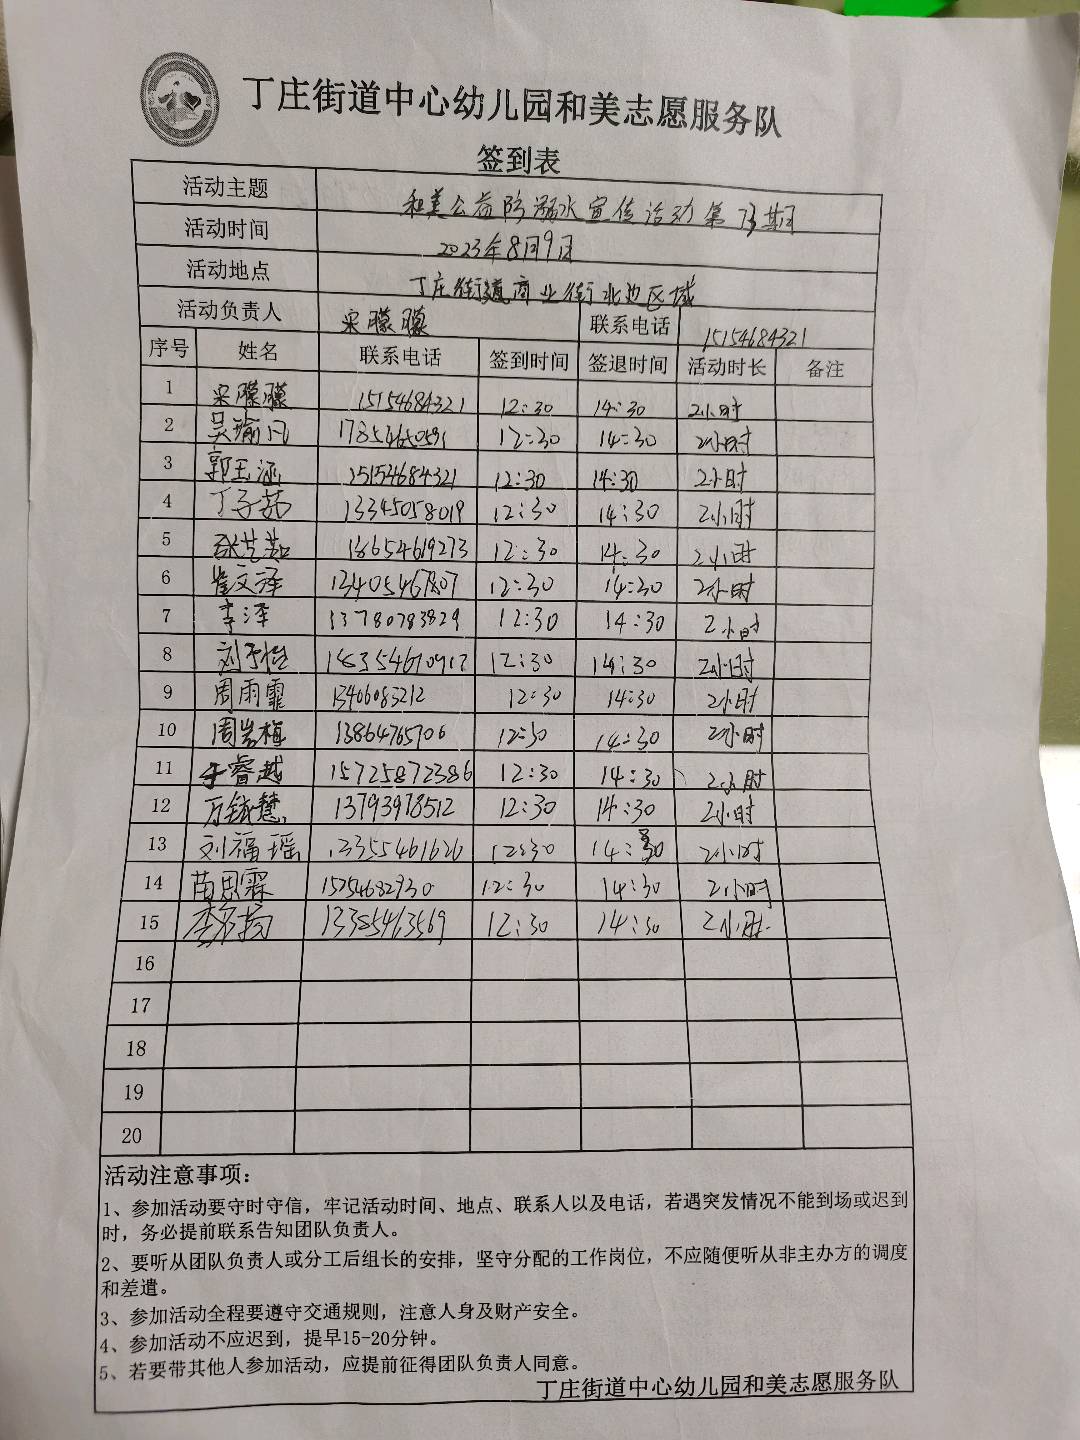 丁庄街道中心幼儿园和美志愿服务队
签到表
活动主题 和美公益防溺水宣传活动第 期
活动时间 2023年8月9日
活动地点 丁庄街道商业街北边区域
活动负责人 宋朦朦 联系电话 15154684321
序号 姓名 联系电话 签到时间 签退时间 活动时长 备注
1 宋朦朦 15154684321 12:30 14:30 2小时
2 吴瑜凡 17854650591 12:30 14:30 2小时
3 郭玉涵 15154684321 12:30 14:30 2小时
4 丁子茹 13345058019 12:30 14:30 2小时
5 张芸茹 18654619273 12:30 14:30 2小时
6 崔文泽 13405467807 12:30 14:30 2小时
7 李泽 13780783829 12:30 14:30 2小时
8 刘予恺 12:30 14:30 2小时
9 周雨霏 13406083212 12:30 14:30 2小时
10 周岩梅 13864765706 12:30 14:30 2小时
11 于睿越 15725872386 12:30 14:30 2小时
12 万铱慧 13793978512 12:30 14:30 2小时
13 刘福瑶 12:30 14:30 2小时
14 苗思霖 15254682930 12:30 14:30 2小时
15 13385463569 12:30 14:30 2小时
16
17
18
19
20
活动注意事项：
1、参加活动要守时守信，牢记活动时间、地点、联系人以及电话，若遇突发情况不能到场或迟到
时，务必提前联系告知团队负责人。
2、要听从团队负责人或分工后组长的安排，坚守分配的工作岗位，不应随便听从非主办方的调度
和差遣。
3、参加活动全程要遵守交通规则，注意人身及财产安全。
4、参加活动不应迟到，提早15-20分钟。
5、若要带其他人参加活动，应提前征得团队负责人同意。
丁庄街道中心幼儿园和美志愿服务队